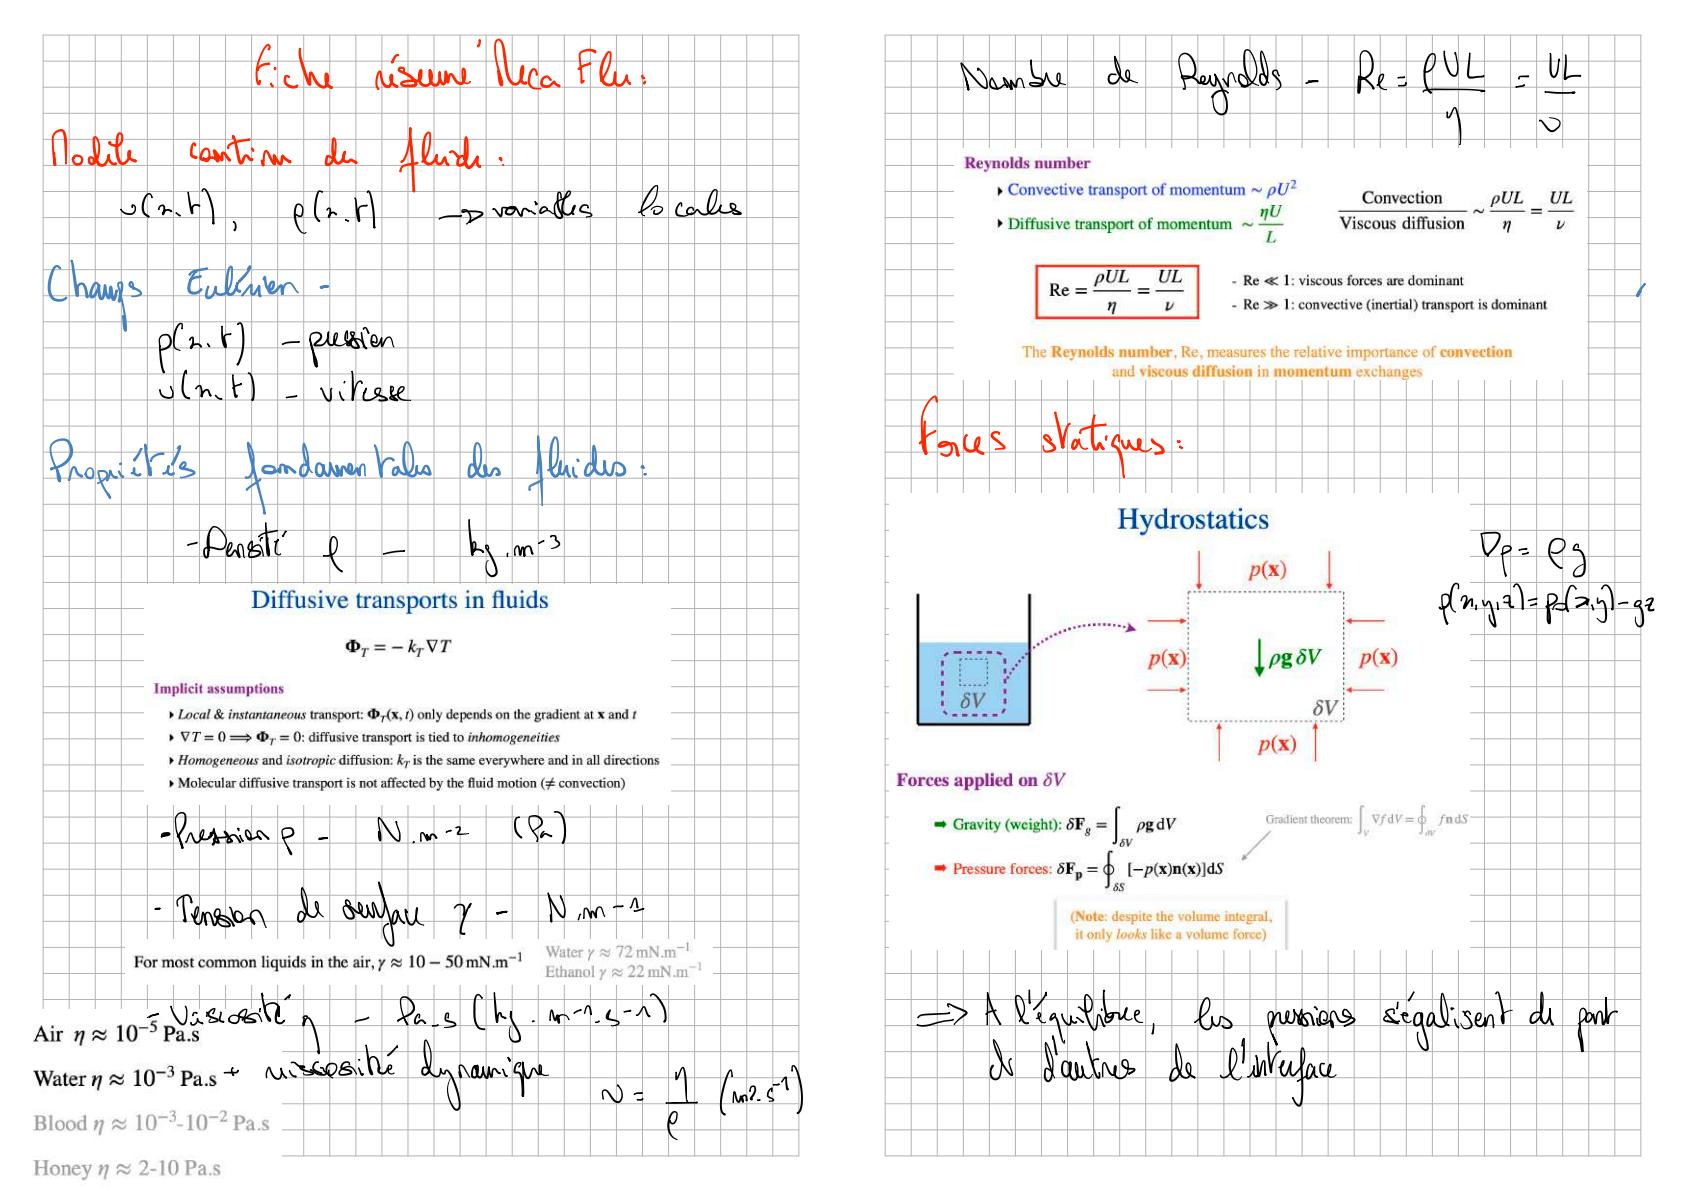 Fiche résumé Meca Flu :
Modèle continu du fluide :
v(x,t), ρ(x,t) → variables locales
Champs Eulérien -
p(x,t) - pression
v(x,t) - vitesse
Propriétés fondamentales des fluides :
- Densité ρ - kg.m-3
Diffusive transports in fluids
Φ_T = − k_T ∇T
Implicit assumptions
‣ Local & instantaneous transport: Φ_T(x, t) only depends on the gradient at x and t
‣ ∇T = 0 ⟹ Φ_T = 0: diffusive transport is tied to inhomogeneities
‣ Homogeneous and isotropic diffusion: k_T is the same everywhere and in all directions
‣ Molecular diffusive transport is not affected by the fluid motion (≠ convection)
- Pression p - N.m-2 (Pa)
- Tension de surface γ - N.m-1
For most common liquids in the air, γ ≈ 10 − 50 mN.m⁻¹
Water γ ≈ 72 mN.m⁻¹
Ethanol γ ≈ 22 mN.m⁻¹
- Viscosité η - Pa.s (kg.m-1.s-1)
Air η ≈ 10⁻⁵ Pa.s
Water η ≈ 10⁻³ Pa.s
+ viscosité dynamique ν = η/ρ (m².s⁻¹)
Blood η ≈ 10⁻³-10⁻² Pa.s
Honey η ≈ 2-10 Pa.s
Nombre de Reynolds - Re = ρUL/η = UL/ν
Reynolds number
‣ Convective transport of momentum ∼ ρU²
‣ Diffusive transport of momentum ∼ ηU/L
Convection/Viscous diffusion ∼ ρUL/η = UL/ν
Re = ρUL/η = UL/ν
- Re ≪ 1: viscous forces are dominant
- Re ≫ 1: convective (inertial) transport is dominant
The Reynolds number, Re, measures the relative importance of convection
and viscous diffusion in momentum exchanges
Forces statiques :
Hydrostatics
∇p = ρg
p(x,y,z) = p₀(x,y) - gz
p(x)
p(x)
ρg δV
p(x)
δV
δV
p(x)
Forces applied on δV
➡ Gravity (weight): δF_g = ∫_δV ρg dV
Gradient theorem: ∫_V ∇f dV = ∮_∂V f n dS
➡ Pressure forces: δF_p = ∮_δS [−p(x)n(x)]dS
(Note: despite the volume integral,
it only looks like a volume force)
⇒ A l'équilibre, les pressions s'égalisent de part
et d'autres de l'interface